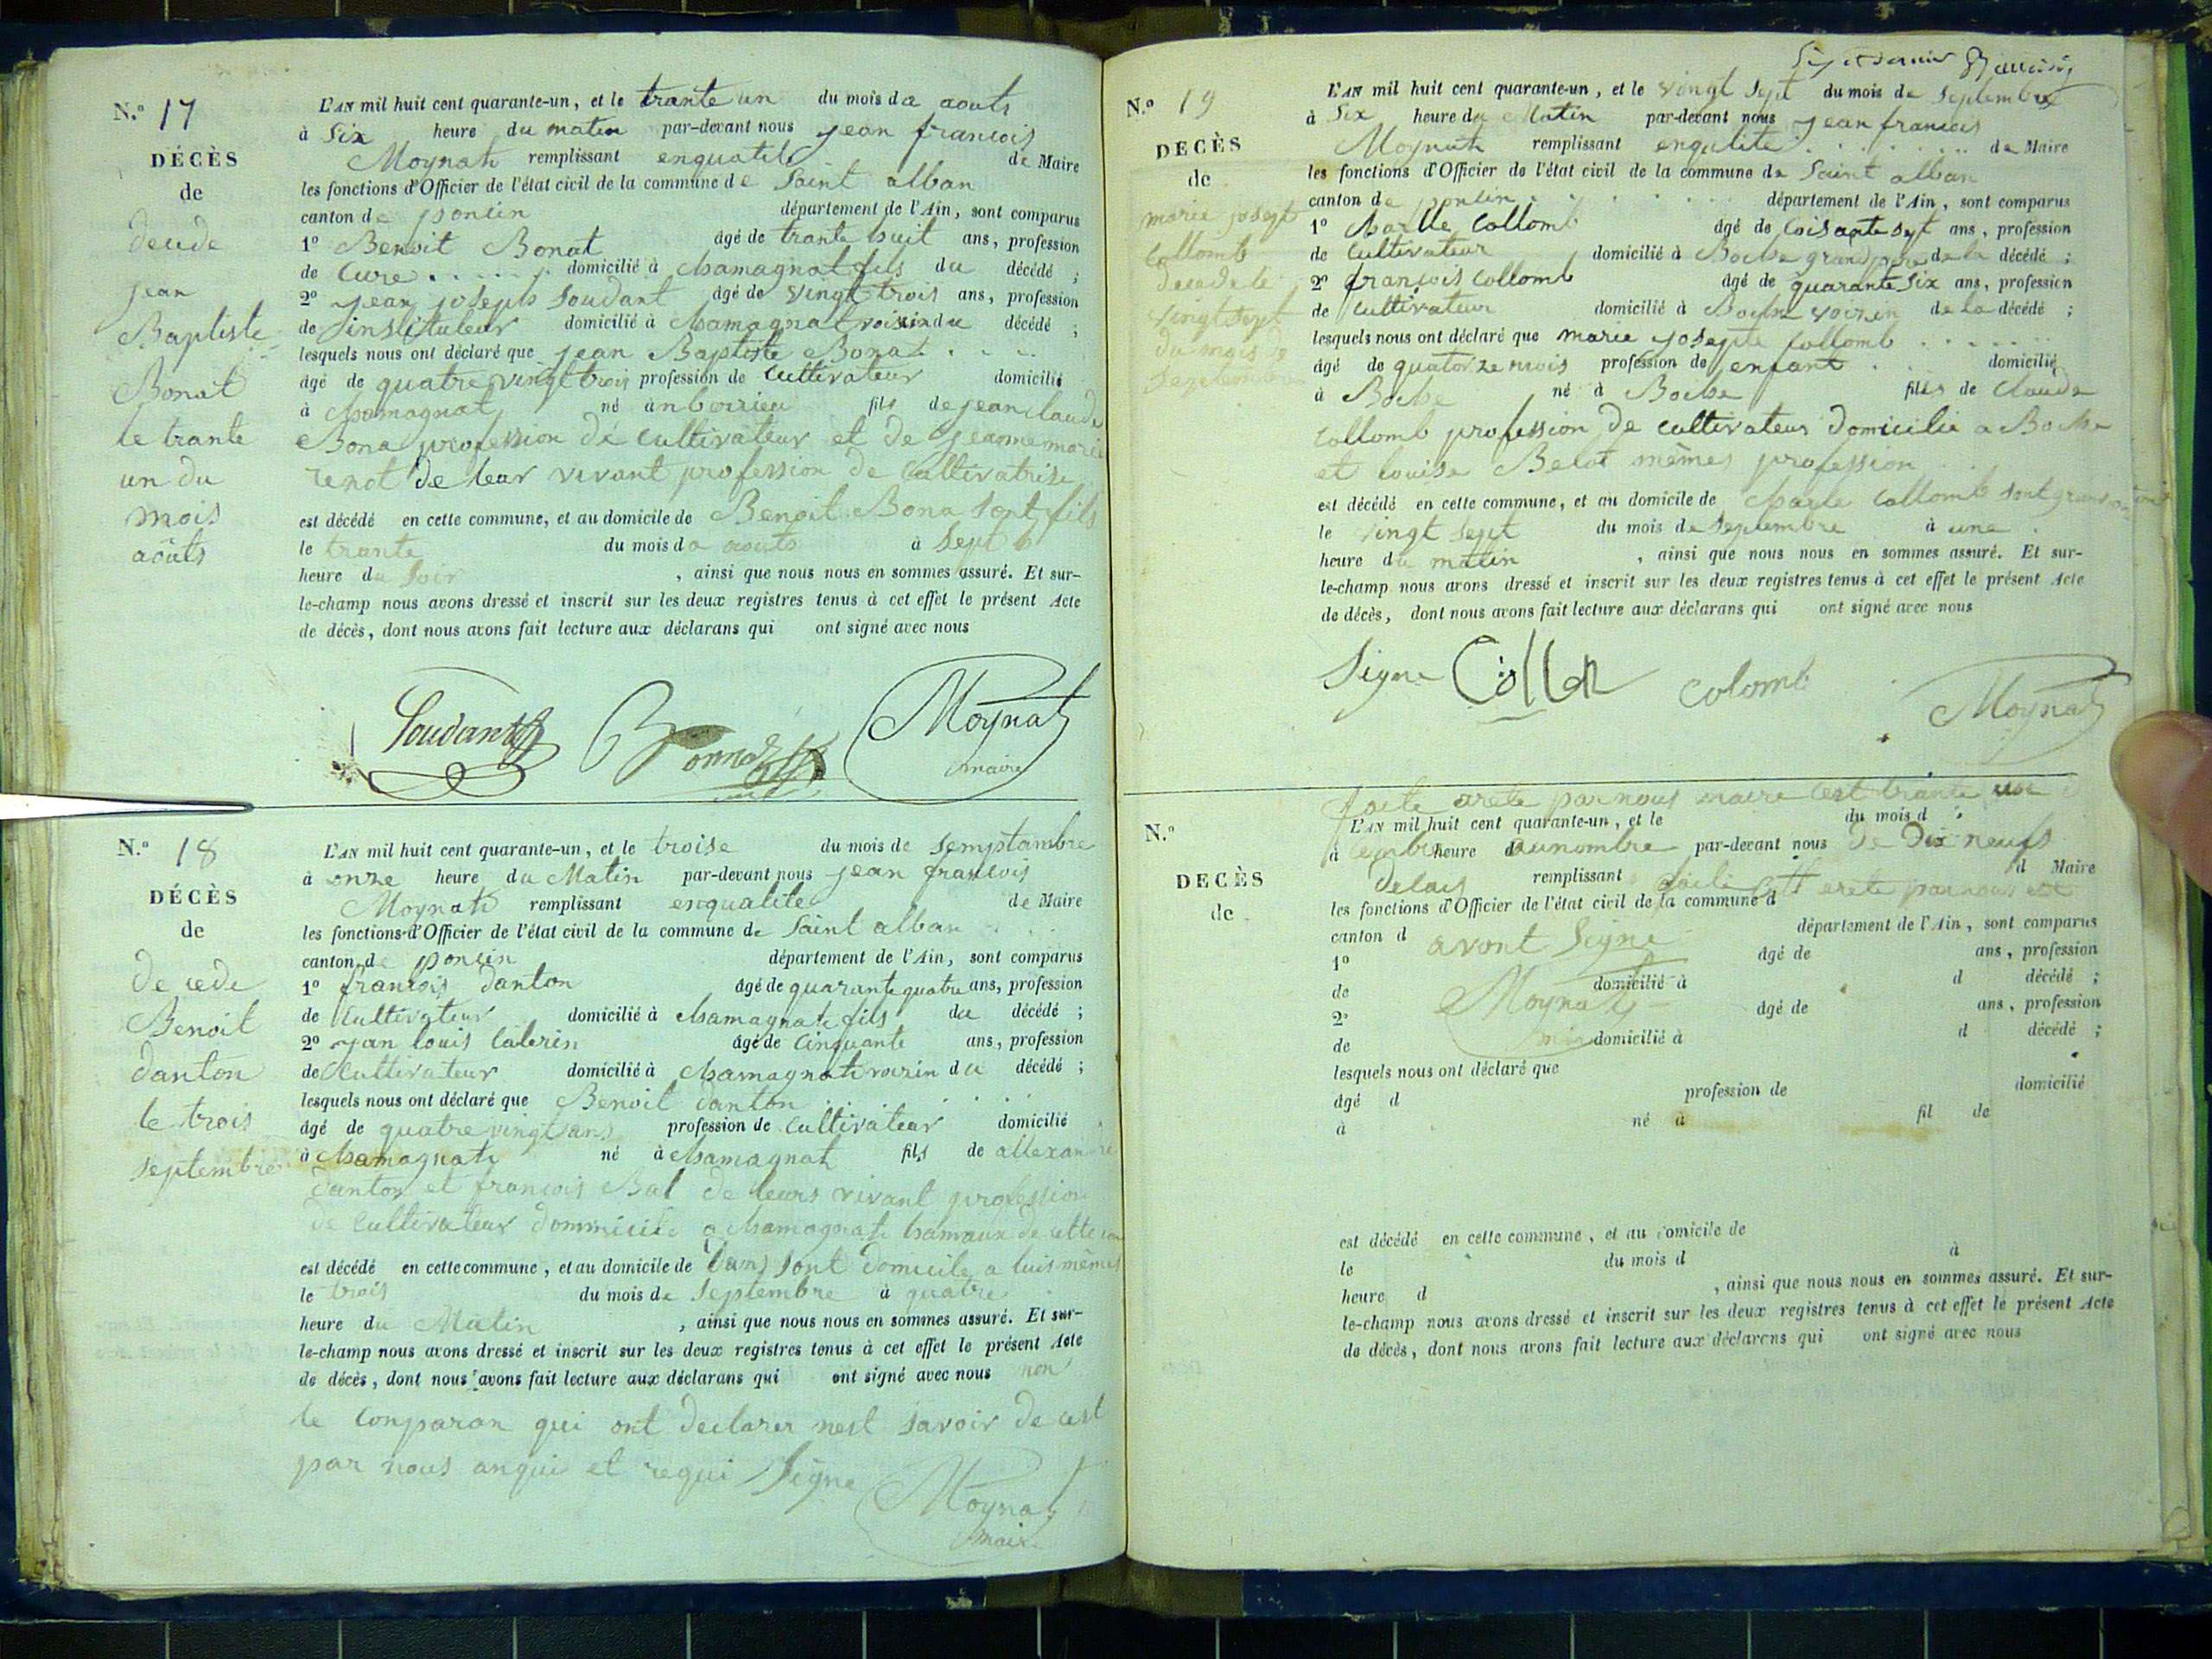 N.º 17
DÉCÈS
de
decede
jean
Baptiste
Bonat
le trante
un du
mois
aôuts
L'AN mil huit cent quarante-un, et le trante un du mois de aouts
à Six heure du matin par-devant nous jean francois
Moynat remplissant enqualite de Maire
les fonctions d'Officier de l'état civil de la commune de Saint alban
canton de poncin département de l'Ain, sont comparus
1º Benoit Bonat âgé de trante huit ans, profession
de Cure domicilié à Chamagnat fils du décédé ;
2º jean joseph Soudant âgé de vingt trois ans, profession
de instituteur domicilié à Chamagnat voisin du décédé ;
lesquels nous ont déclaré que jean Baptiste Bonat
âgé de quatre vingt trois profession de Cultivateur domicilié
à Chamagnat né fils de jean claude
Bona profession de cultivateur et de jeanne marie
renot de leur vivant profession de Cultivatrise
est décédé en cette commune, et au domicile de Benoit Bona sont fils
le trante du mois de aouts à Sept
heure du Soir , ainsi que nous nous en sommes assuré. Et sur-
le-champ nous avons dressé et inscrit sur les deux registres tenus à cet effet le présent Acte
de décès, dont nous avons fait lecture aux déclarans qui ont signé avec nous
Soudant Bonnat Moynat
maire
N.º 18
DÉCÈS
de
de cede
Benoit
danton
le trois
septembre
L'AN mil huit cent quarante-un, et le troise du mois de semptambre
à onze heure du Matin par-devant nous jean francois
Moynat remplissant enqualite de Maire
les fonctions d'Officier de l'état civil de la commune de Saint alban
canton de poncin département de l'Ain, sont comparus
1º francois danton âgé de quarante quatre ans, profession
de Cultivateur domicilié à Chamagnat fils du décédé ;
2º jean louis Caterin âgé de Cinquante ans, profession
de Cultivateur domicilié à Chamagnat voizin du décédé ;
lesquels nous ont déclaré que Benoit danton
âgé de quatre vingt ans profession de Cultivateur domicilié
à Chamagnat né à Chamagnat fils de allexandre
danton et francois Bal de leurs vivant profession
de Cultivateur dommicile a Chamagnat hamaux de cette
est décédé en cette commune, et au domicile de dans sont domicile a luis mêmes
le trois du mois de Septembre à quatre
heure du Matin , ainsi que nous nous en sommes assuré. Et sur-
le-champ nous avons dressé et inscrit sur les deux registres tenus à cet effet le présent Acte
de décès, dont nous avons fait lecture aux déclarans qui ont signé avec nous non
le conparan qui ont declarer nest savoir de cest
par nous anqui et requi Signe Moynat
maire
N.º 19
DECÈS
de
marie josept
Collomb
decede le
vingt sept
du mois de
Septembre
L'AN mil huit cent quarante-un, et le vingt sept du mois de Septembre
à Six heure du Matin par-devant nous jean francois
Moynat remplissant enqalite de Maire
les fonctions d'Officier de l'état civil de la commune de Saint alban
canton de poncin département de l'Ain, sont comparus
1º Charlle Collomb âgé de soisante sept ans, profession
de Cultivateur domicilié à Boche grand pere de la décédé ;
2º francois Collomb âgé de quarante Six ans, profession
de Cultivateur domicilié à Boche voizin de la décédé ;
lesquels nous ont déclaré que marie josepte Collomb
âgé de quatorze mois profession de enfant domicilié
à Boche né à Boche filles de Claude
Collomb profession de cultivateur domicilie a Boche
et louise Belot mêmes profession
est décédé en cette commune, et au domicile de Charle Collomb sont grand
le vingt Sept du mois de Septembre à une
heure du matin , ainsi que nous nous en sommes assuré. Et sur-
le-champ nous avons dressé et inscrit sur les deux registres tenus à cet effet le présent Acte
de décès, dont nous avons fait lecture aux déclarans qui ont signé avec nous
Signe Collon colomb Moynat
N.º
DECÈS
de
par nous maire trante un
L'AN mil huit cent quarante-un, et le du mois d
à heure d aunombre par-devant nous de Dix neufs
remplissant d Maire
arete par nous
les fonctions d'Officier de l'état civil de la commune d
canton d avont Signe département de l'Ain, sont comparus
1º âgé de ans, profession
de domicilié à d décédé ;
Moynat
2º âgé de ans, profession
de domicilié à d décédé ;
lesquels nous ont déclaré que
âgé d profession de domicilié
à né à fil de
est décédé en cette commune, et au domicile de
le du mois d à
heure d , ainsi que nous nous en sommes assuré. Et sur-
le-champ nous avons dressé et inscrit sur les deux registres tenus à cet effet le présent Acte
de décès, dont nous avons fait lecture aux déclarans qui ont signé avec nous